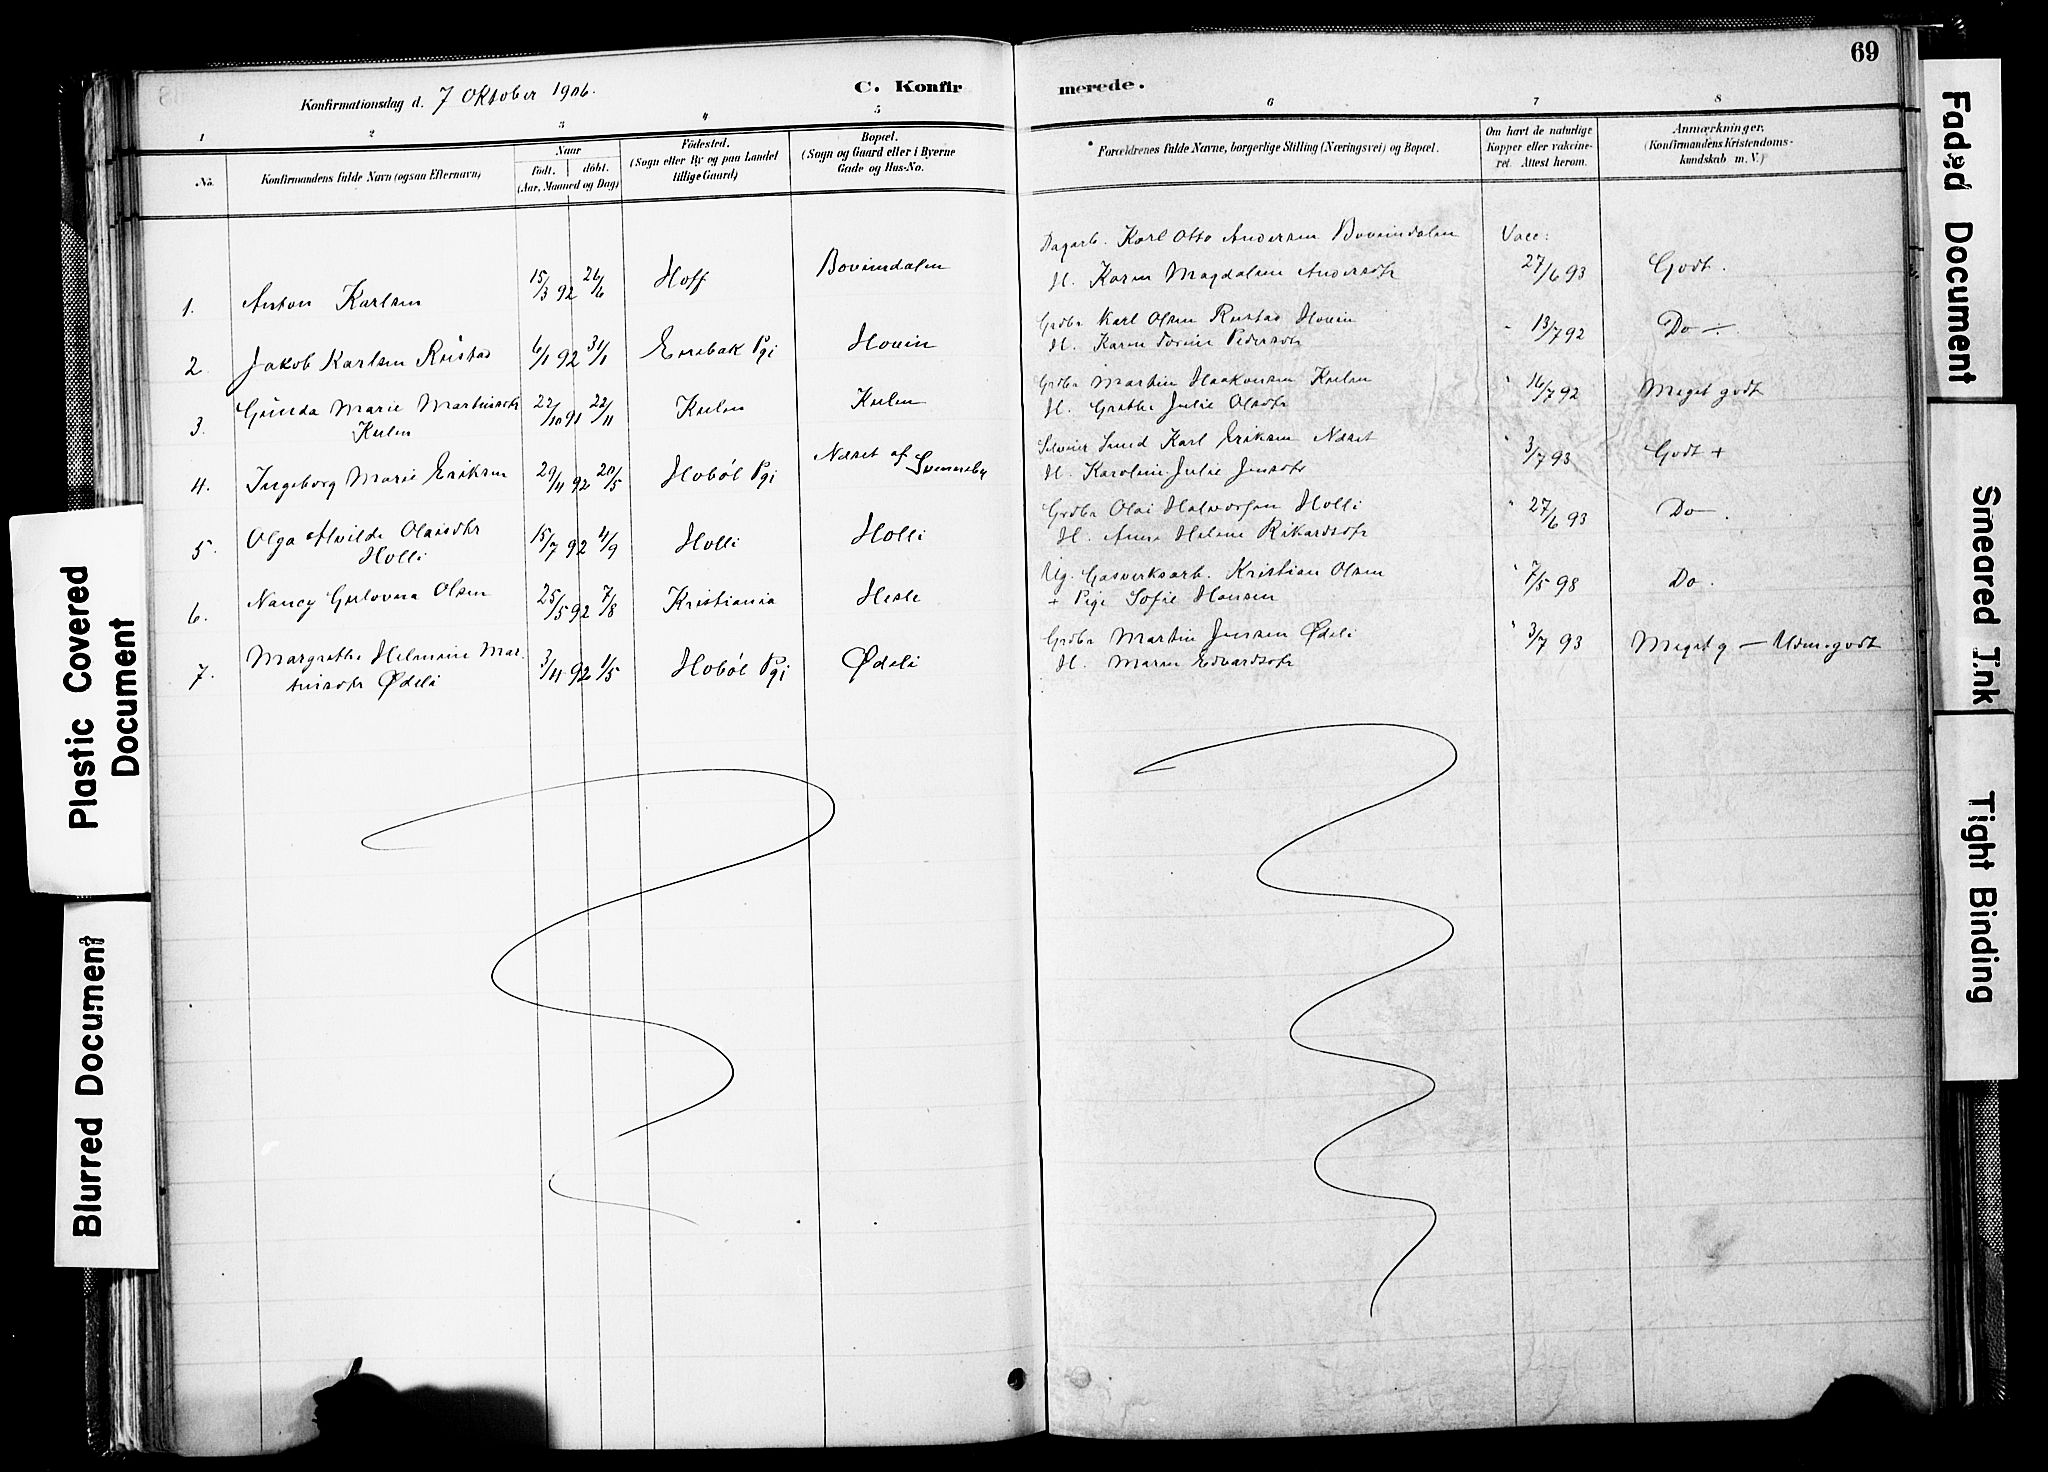 69
Konfirmationsdag d. 7 Oktober 1906.
C. Konfirmerede.
1 2 3 4 5 6 7 8
No.
Konfirmandens fulde Navn (ogsaa Efternavn)
Naar
födt. döbt.
(Aar, Maaned og Dag)
Födested.
(Sogn eller By og paa Landet
tillige Gaard)
Bopæl.
(Sogn og Gaard eller i Byerne
Gade og Hus-No.
Forældrenes fulde Navne, borgerlige Stilling (Næringsvei) og Bopæl.
Om havt de naturlige
Kopper eller vakcine-
ret. Attest herom.
Anmærkninger.
(Konfirmandens Kristendoms-
kundskab m. V.)
Dagarb. Karl Otto Andersen Bovimdalen Vacc:
1. Anton Karlsen 15/3 92 26/6 Hoff Bovimdalen H. Karen Magdalene Andersdtr 27/6 93 Godt.
Grdbr Karl Olsen Rustad Houin
2. Jakob Karlsen Rustad 6/1 92 31/1 Enebak Pgj Houin H. Karen Pedersdtr " 13/7 92 Do ÷
3. Gunda Marie Martinsdtr 22/10 91 22/11 Kulen Kulen Grdbr Martin Haakonsen Kulen " 16/7 92 Meget godt
Kulen H. Grethe Julie Olsdtr
4. Ingeborg Marie Eriksen 29/4 92 20/5 Hoböl Pgj Næset af Karl Eriksen Næset " 3/7 93 Godt +
H. Karoline Julie Jensdtr
5. Olga Alvilde Olaisdtr 15/7 92 4/9 Holli Holli Grdbr Olai Halvorsen Holli " 27/6 93 Do.
Holli H. Anne Helene Rikardsdtr
6. Nancy Olsen 25/5 92 7/8 Kristiania Hesle Ug. Gasverksarb. Kristian Olsen " 7/5 98 Do.
+ Pige Sofie Hansen
7. Margrethe Helmine Mar- 3/4 92 1/5 Hoböl Pgj Ødeli Grdbr Martin Jensen Ødeli " 3/7 93 Meget g — Udm. godt
tinsdtr Ødeli H. Maren Edvardsdtr
Plastic Covered
Document
Blurred Document
Faded Document
Smeared Ink
Tight Binding